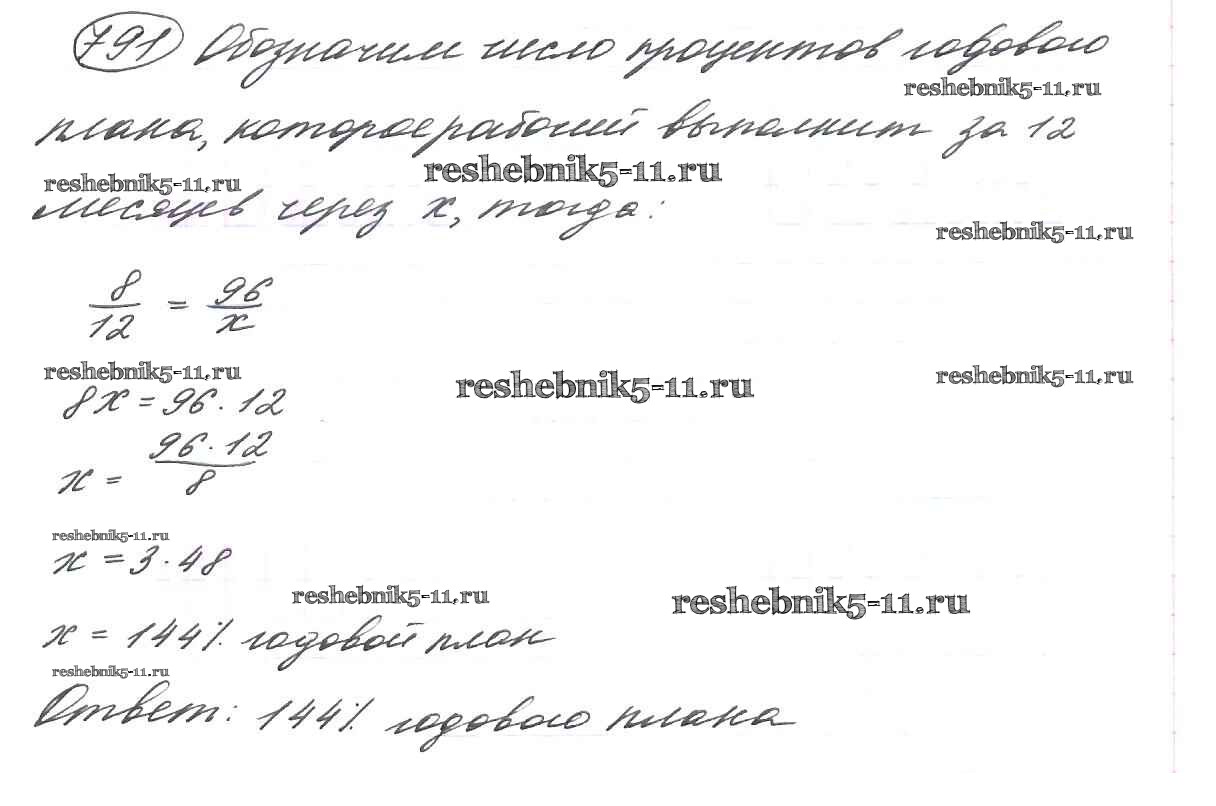 791 Обозначим число процентов годового
reshebnik5-11.ru
плана, которое рабочий выполнит за 12
reshebnik5-11.ru reshebnik5-11.ru
месяцев через x, тогда:
reshebnik5-11.ru
8/12 = 96/x
reshebnik5-11.ru reshebnik5-11.ru reshebnik5-11.ru
8x = 96 · 12
x = 96 · 12/8
reshebnik5-11.ru
x = 3 · 48
reshebnik5-11.ru reshebnik5-11.ru
x = 144% годовой план
reshebnik5-11.ru
Ответ: 144% годового плана